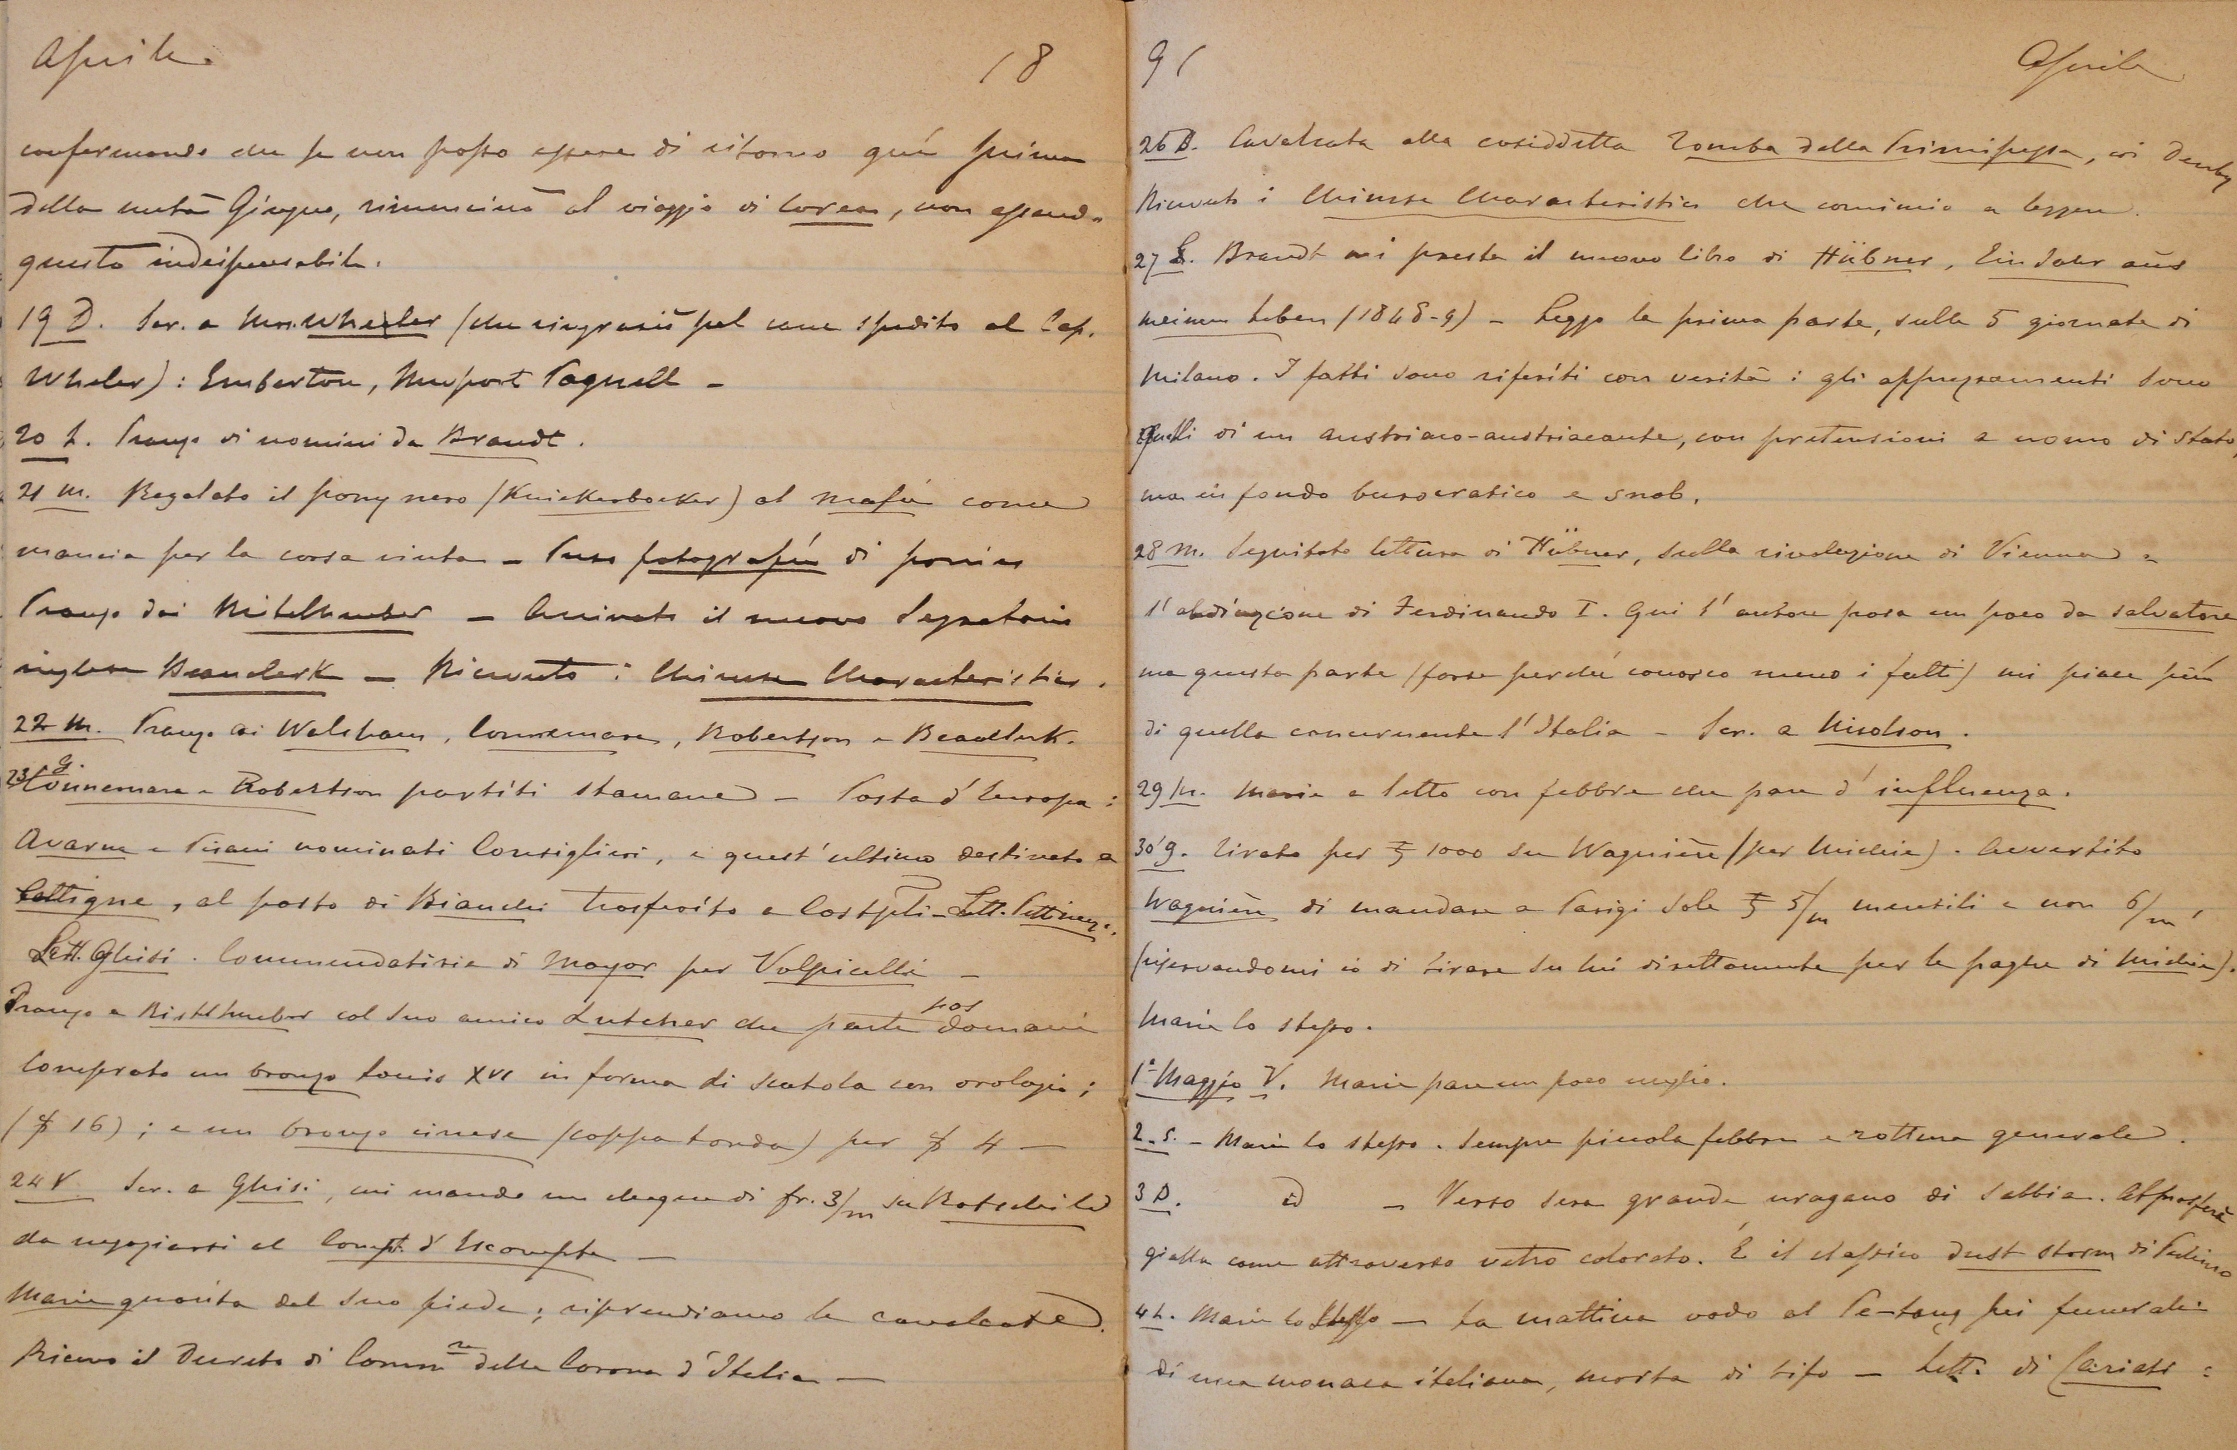 Aprile. 18
confermando che se non posso essere di ritorno quì prima
della metà Giugno, rinuncierò al viaggio di Corea, non essendo
questo indispensabile.
19 D. Scr. a Mrs. Wheeler (che ringraziò pel cane spedito al Cap.
Wheler) : Emberton, Newport Pagnell –
20 L. Pranzo di uomini da Brandt.
21 M. Regalato il pony nero (Knickerbocker) al mafù come
mancia per la corsa vinta – Fuso fotografie di ponies
Pranzo dai Ristelhueber – Arrivato il nuovo Segretario
inglese Beauclerk – Ricevuto i Chinese Characteristics.
22 M. Pranzo ai Walsham, Connemara, Robertson e Beauclerk.
23 G. Connemara e Robertson partiti stamane – Posta d'Europa :
Avarna e Pisani nominati Consiglieri, e quest'ultimo destinato a
Cettigne, al posto di Bianchi trasferito a Costpli – Lett. Pettinengo.
Lett. Ghisi. Commendatizia di Mayor per Volpicelli –
Pranzo a Ristelhueber col suo amico Lutcher che parte pos domani
Comprato un bronzo Louis XVI in forma di scatola con orologio ;
($ 16) ; e un bronzo cinese (coppa tonda) per $ 4 –
24 V Scr. a Ghisi, mi mande un cheque di fr. 3/m su Rotschild
da negoziarsi al Compt. d'Escompte –
Marie guarita del suo piede ; riprendiamo le cavalcate.
Ricevo il Decreto di Commre della Corona d'Italia –
91 Aprile
26 D. Cavalcata alla cosiddetta Tomba della Principessa, coi Denby
Ricevuto i Chinese Characteristics che comincio a leggere.
27 L. Brandt mi presta il nuovo libro di Hübner, Ein Jahr aus
meinem Leben (1848-9) – Leggo la prima parte, sulle 5 giornate di
Milano. I fatti sono riferiti con verità : gli apprezzamenti sono
quelli di un austriaco-austriacante, con pretensioni a uomo di stato,
ma in fondo burocratico e snob.
28 M. Seguitato lettura di Hübner, sulla rivoluzione di Vienna e
l'abdicazione di Ferdinando I. Qui l'autore posa un poco da salvatore
ma questa parte (forse perchè conosco meno i fatti) mi piace più
di quella concernente l'Italia – Scr. a Nicolson.
29 M. Marie a letto con febbre che pare d'influenza.
30 G. Tirato per ₤ 1000 su Wagnière (per Michie). Avvertito
Wagnière di mandare a Parigi sole ₤ 5/m mensili e non 6/m,
(riservandomi io di tirare su lui direttamente per le paghe di Michie).
Marie lo stesso.
1° Maggio V. Marie pare un poco meglio.
2. S. – Marie lo stesso. Sempre piccola febbre e rottura generale.
3 D. id – Verso sera grande uragano di sabbia. Atmosfera
gialla come attraverso vetro colorato. È il classico dust storm di Pechino
4 L. Marie lo stesso – La mattina vado al Pe-tang pei funerali
di una monaca italiana, morta di tifo – Lett. di Cariati :